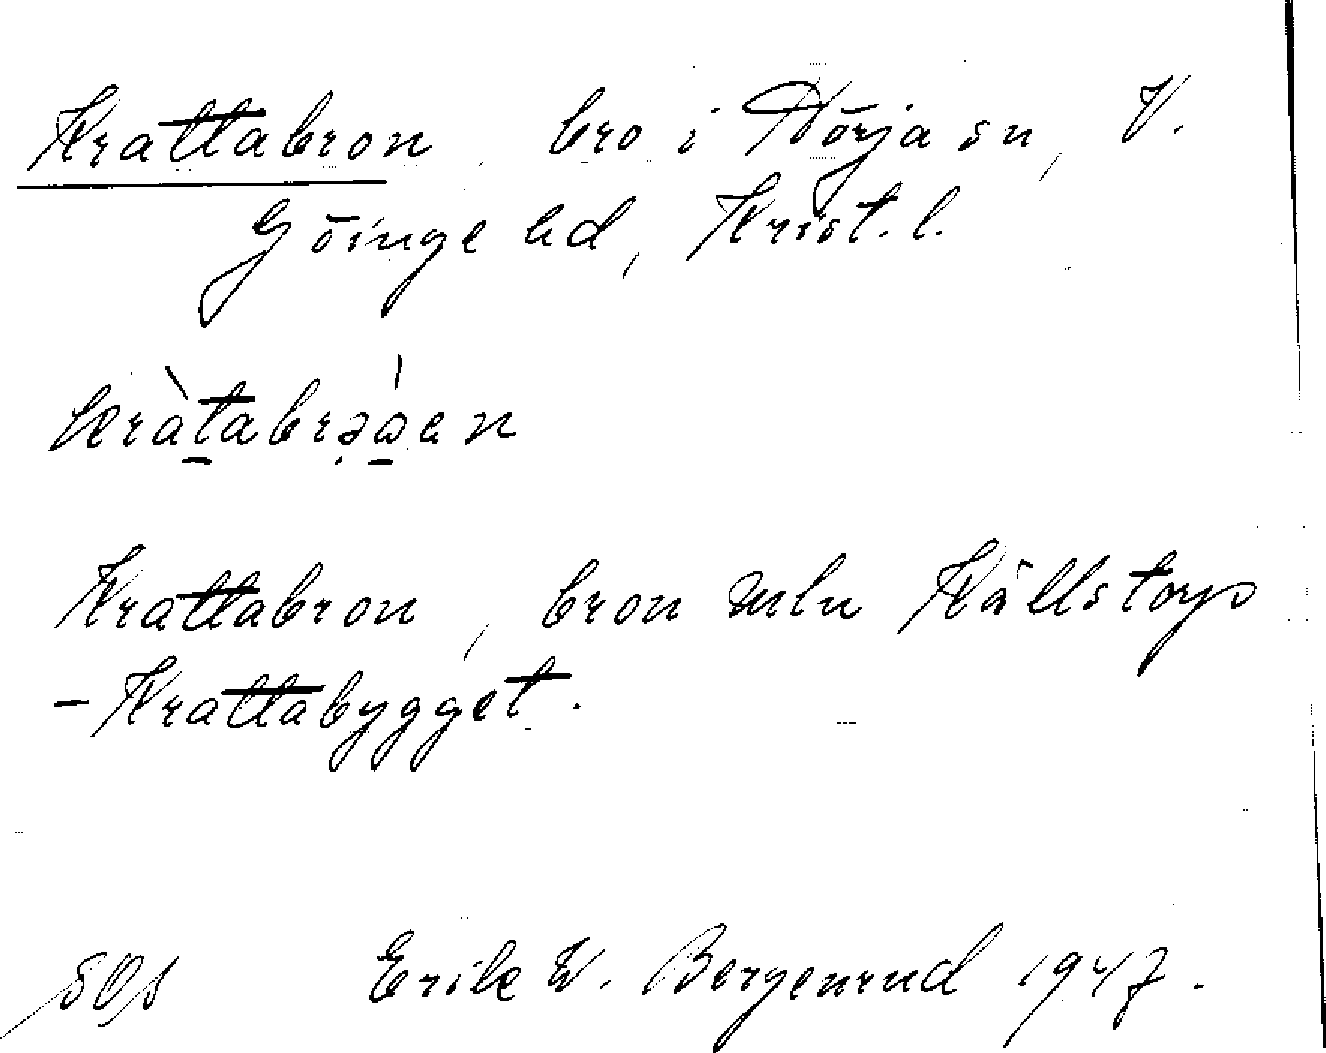 Krattabron, bro i Hörja sn, V.
Göinge hd, Krist. l.
Krattabron, bron mln Hållstorps
-Krattabygget.
Erik W. Bergenrud 1947.